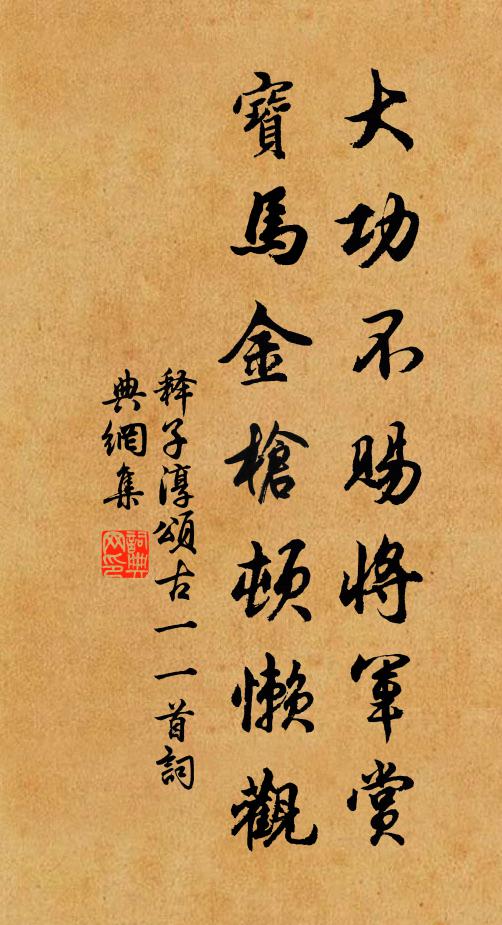 大功不賜將軍賞
寶馬金槍頓懶觀
释子淳頌古一一首詞
典網集
詞典
网印